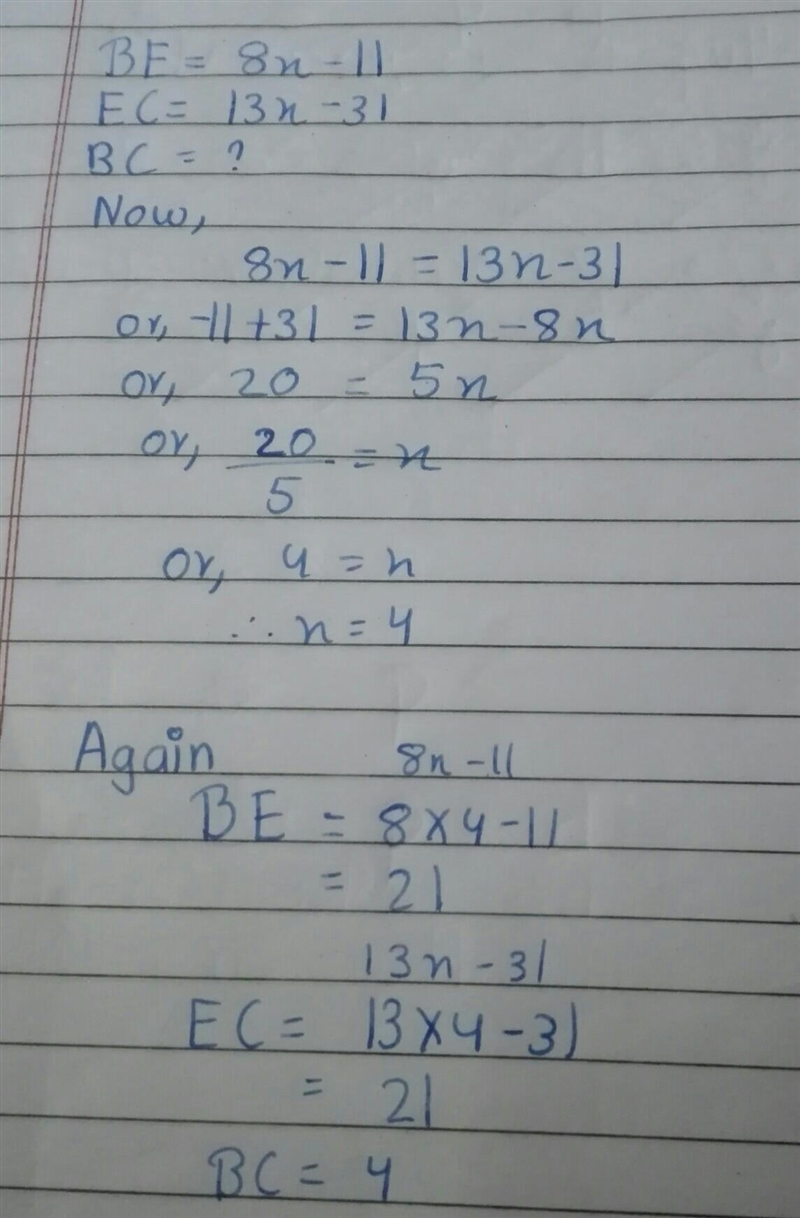 BE = 8n - 11
EC = 13n - 31
BC = ?
Now,
8n - 11 = 13n - 31
or, -11 + 31 = 13n - 8n
or, 20 = 5n
or, 20/5 = n
or, 4 = n
∴ n = 4
Again 8n - 11
BE = 8 × 4 - 11
= 21
13n - 31
EC = 13 × 4 - 31
= 21
BC = 4